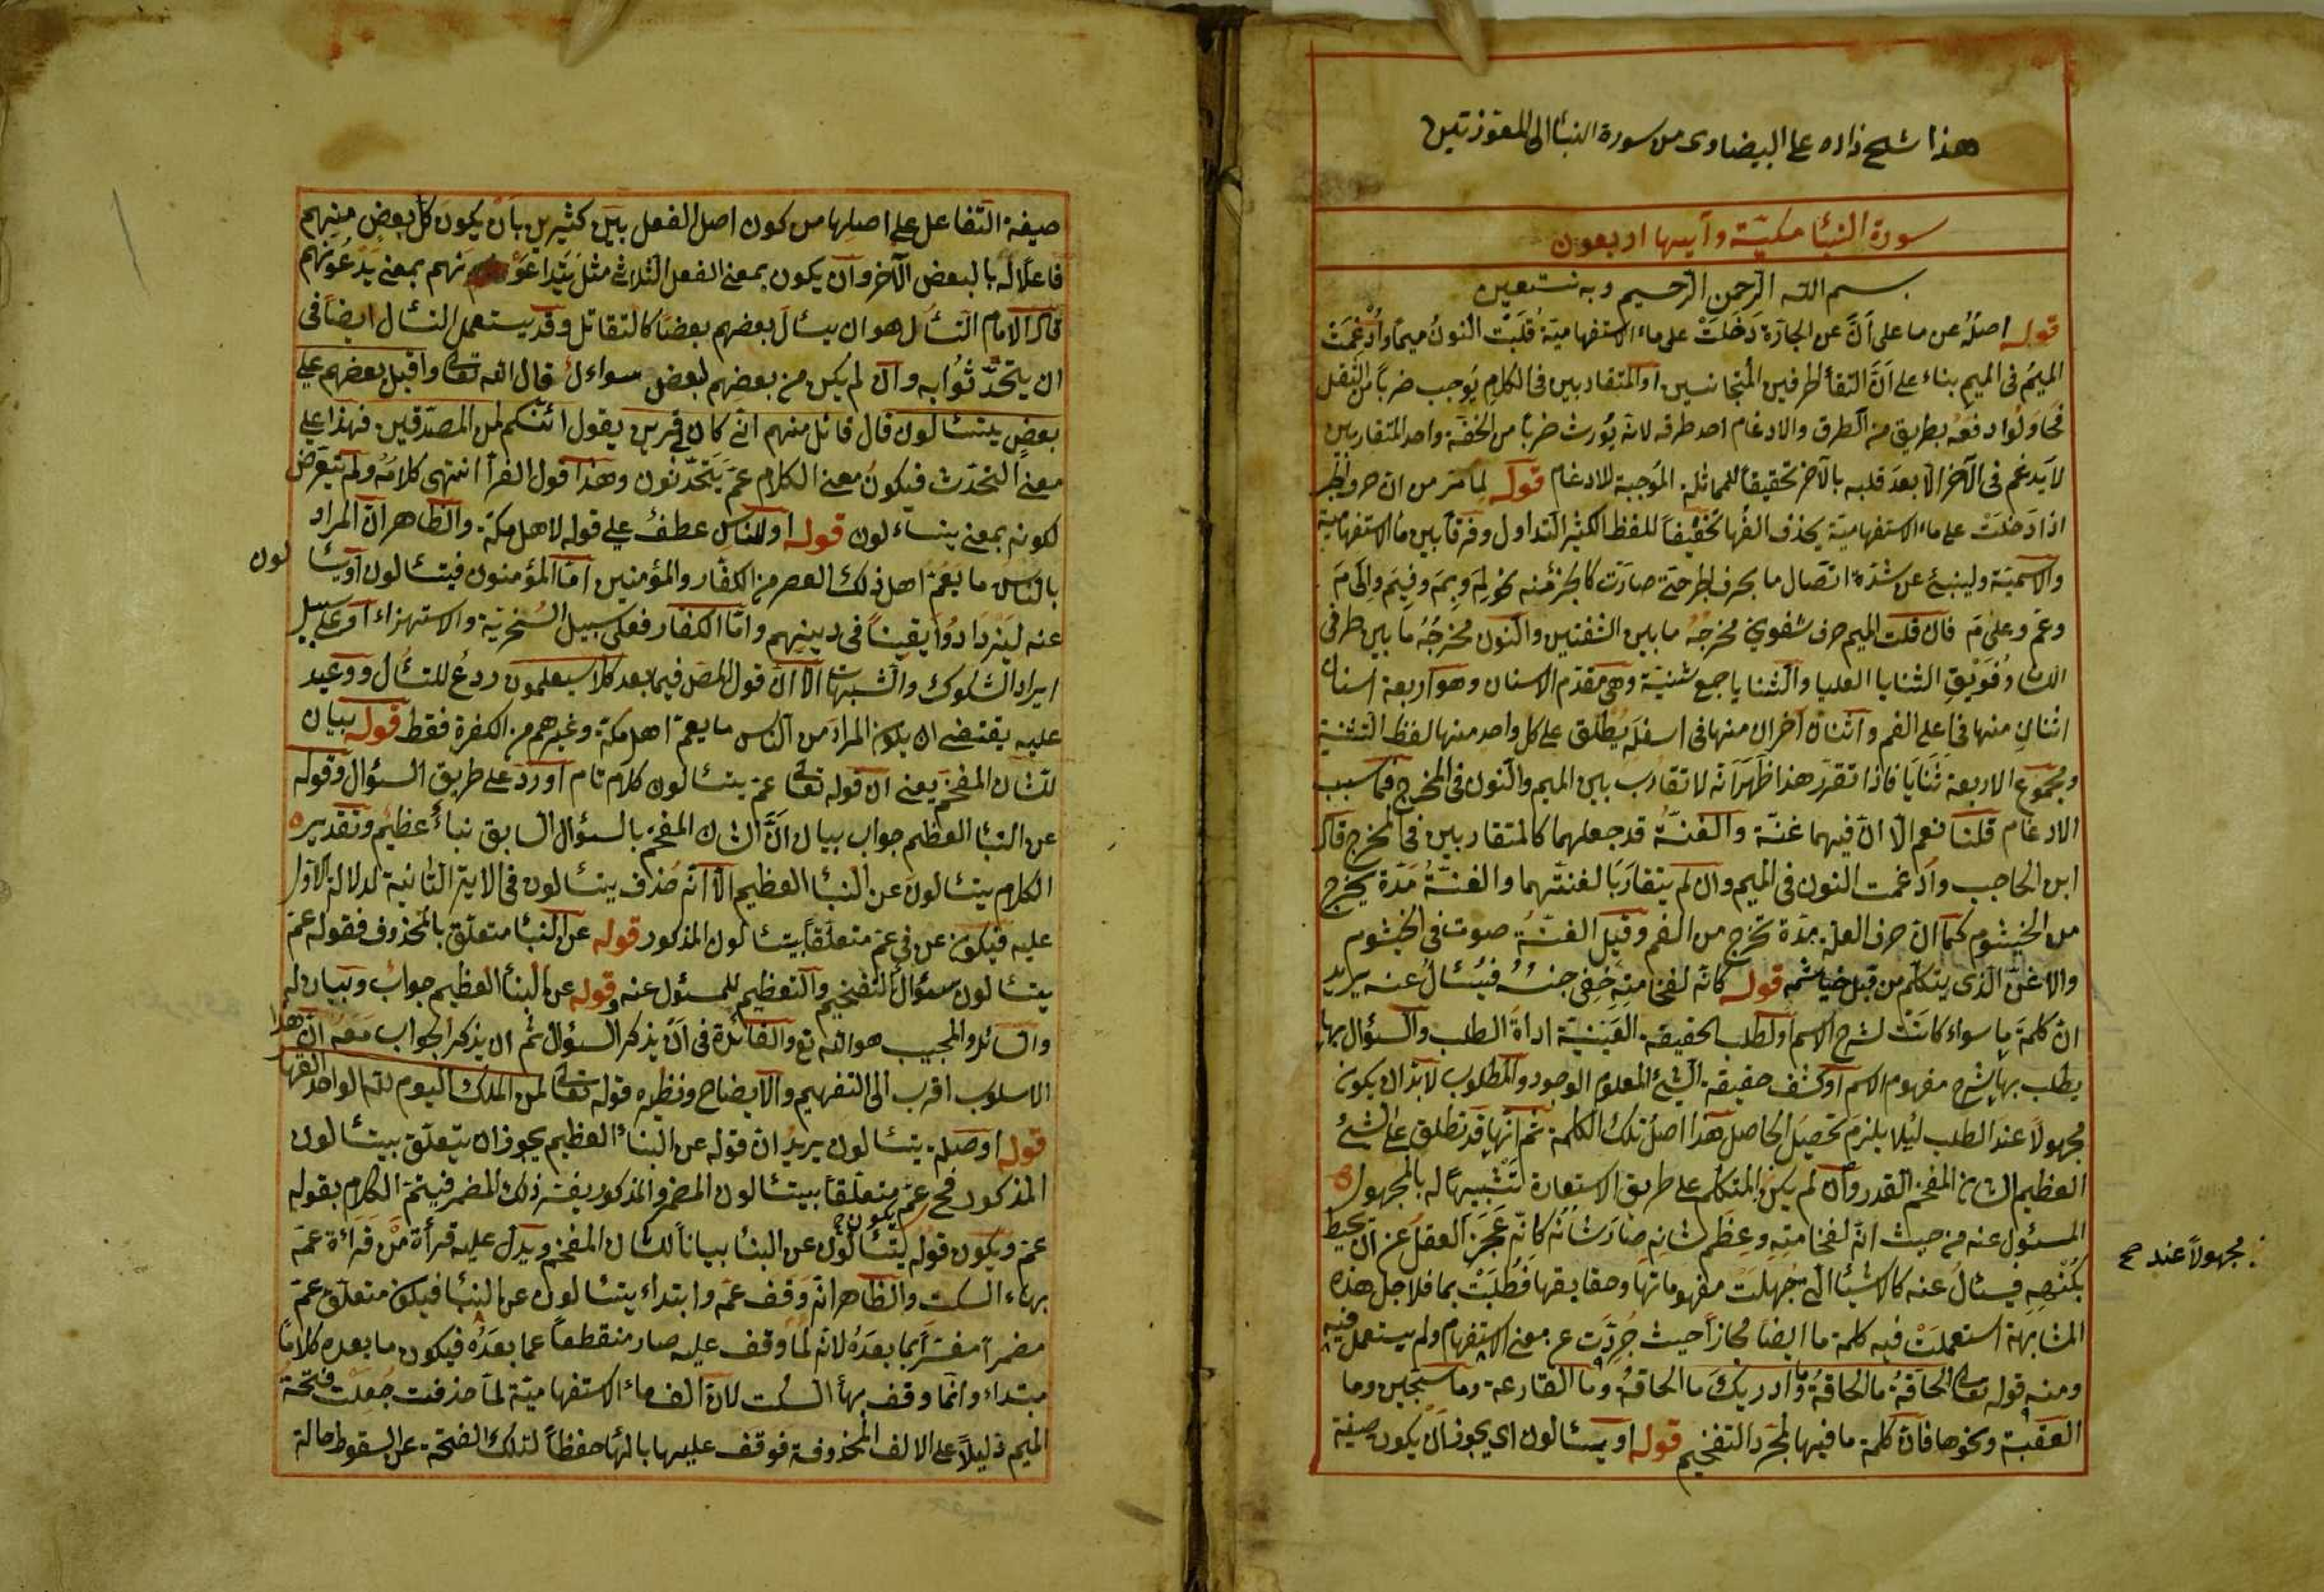 هذا شيخ زاده على البيضاوى من سورة النبأ الى المعوذتين
سورة النبأ مكية وآيها اربعون
بسم الله الرحمن الرحيم وبه نستعين
قوله اصله عن ما على اَنَّ عن الجارّة دَخَلَتْ على ماء الاستفهاميّة قُلِبَت النونُ ميماً واُدْغِمَت
الميمُ فى الميم بناء على اَنَّ التقأ الحرفين المُتجانسين او المتقاربين فى الكلام يُوجب ضرباً من الثقل
فحَاوَلُوا دفعَهُ بطريق من الطرق والادغام احد طرقه لانه يُورث ضرباً من الخفّة واحد المتقاربين
لا يدغم فى الآخر الّا بعدَ قلبه بالآخر تحقيقاً للمماثلة الموجبة للادغام قوله لما مرّ من ان حروف الجر
اذا دَخَلَتْ على ماء الاستفهاميّة يحذف الفُها تخفيفاً للفظ الكثير التداول وفرقاً بين ما الاستفهامية
والاسميّة ولينبئ عن شدّة اتصال ما بحرف الجر حتى صارَت كالجزء منه نحو لِمَ وبِمَ وفِيمَ وإلى مَ
وعمّ وعلى مَ فان قلت الميم حرف شفوىّ مخرجُه ما بين الشفتين والنون مخرجُهُ ما بين طرفى
اللسان وفُوَيْقِ الثنايا العليا والثنايا جمع ثنيّة وهى مقدّم الاسنان وهو اربعة اسنان
اثنان منها فى اعلى الفم واثنان آخران منها فى اسفله يُطْلَق على كل واحد منها لفظ الثنيّة
ومجموع الاربعة ثنايَا فاذا تقرّر هذا ظَهَرَ اَنّه لا تقارب بين الميم والنون فى المخرج فما سبب
الادغام قلنا نعم الّا انّ فيهما غنّة والغنّةُ قد جعلهما كالمتقاربين فى المخرج قال
ابن الحاجب وادغمت النون فى الميم وان لم يتقاربَا لغنتهما والغنّةُ مَدّة يخرج
من الخيشوم كما انّ حرف العلّة مدّة تخرج من الفم وقيل الغنّةُ صوت فى الخيشوم
والاغنّ الذى يتكلّم من قبل خياشمه قوله كانّه لفخامته خفى جنسُهُ فيُسْئالُ عنه يريد
انّ كلمةَ ما سواء كانت لشرح الاسم او لطلب الحقيقة العَيْنيّة اداة الطلب والسؤال بها
يطلب بها شرح مفهوم الاسم او كشف حقيقة الشئ المعلوم الوجود والمطلوب لا بدّ ان يكون
مجهولاً عند الطلب لئلا يلزم تحصيل الحاصل هذا اصلُ تلك الكلمة ثم انها قد تطلق على الشئ
العظيم الشان المفخم القدر وان لم يكن المتكلم على طريق الاستعارة لتشبيهاً له بالمجهول
المسئول عنه من حيث انه لفخامته وعِظَمِ شانِه صارَ شانُه كانّه عَجَزَ العقل عن ان يحيط
بكُنْهِهِ فيسئال عنه كالاشيا التى جُهِلَت مفهوماتها وحقايقها فطُلِبَتْ بما فلاجل هذه
المشابهة استعملت فيه كلمة ما ايضا مجازاً حيث جُرِّدَت عن معنى الاستفهام ولم يستعمل فيه
ومنه قوله تعالى الحاقةُ ما الحاقةُ وما ادريك ما الحاقة وما القارعة وما سجين وما
العقبة ونحوها فان كلمة ما فيها لمجرّد التفخيم قوله او يتسئالون اى يجوز ان يكون صيغة
مجهولاً عند صح
صيغة التفاعل على اصلها من كون اصل الفعل بين كثيرين بان يكون كل بعض منهم
فاعلا له بالبعض الآخر وان يكون بمعنى الفعل الثلاثى مثل يَتَداعَوْنهم بمعنى يَدْعُونهم
قال الامام التسئال هو ان يسئالَ بعضهم بعضا كالتقاتل وقد يستعمل التسئال ايضا فى
ان يتحدّثوا به وان لم يكن من بعضهم لبعض سواءل قال الله تعالى واقبل بعضهم على
بعض يتسئالون قال قائل منهم انى كان لى قرين يقول ائنكم لمن المصدّقين فهذا على
معنى التحدّث فيكونُ معنى الكلام عمّ يَتَحدّثون وهذا قول الفرأ انتهى كلامُهُ ولم يتعرّض
لكونه بمعنى يتساءلون قوله او للناس عطفٌ على قوله لاهل مكّة والظاهر انّ المراد
بالناس ما يعمّ اهل ذلك العصر من الكفّار والمؤمنين امّا المؤمنون فيتسئالون او يسئا لون
عنه ليَزدَادُوا يقيناً فى دينهم وامّا الكفار فعلى سبيل السّخريّة والاستهزاء او على سبيل
ايراد الشكوك والشبهات الّا انّ قول المص فيما بعد كلا سيعلمون ردعٌ للتسئال ووعيد
عليه يقتضى ان يكون المراد من الناس ما يعمّ اهل مكة وغيرهم من الكفرة فقط قوله بيان
للشان المفخم يعنى ان قوله تعالى عمّ يتسئالون كلام تام اورد على طريق السؤال وقوله
عن النبئا العظيم جواب بيان اَنَّ الشان المفخم بالسئوال السابق نبأ عظيم وتقديره
الكلام يتسئالون عن النبئا العظيم الّا انّه حُذف يتسئالون فى الاية الثانية لدلالة الاول
عليه فيكون عن فى عمّ متعلّقاً بيتسئالون المذكور قوله عن النبئا متعلّق بالمحذوف فقوله عمّ
يتسئالون سؤال للتفخيم والتعظيم للمسئول عنه وقوله عن النبئا العظيم جوابٌ وبيان له
والسائل والمجيب هو الله تع والفائدة فى اَنْ يذكر السئوال ثم ان يذكر الجواب معه انّ هذا
الاسلوب اقرب الى التفهيم والايضاح ونظيره قوله تعالى لمن الملك اليوم لله الواحد القهار
قوله او صلة يتسئالون يريد انّ قوله عن النبئا العظيم يجوز ان يتعلّق بيتسئالون
المذكور فح يكون عمّ متعلّقاً بيتسئالون المضمر والمذكور يفسّر ذلك المضمر فيتمّ الكلام بقوله
عمّ ويكون قوله يتسئالون عن النبئا بياناً للشان المفخم ويدلّ عليه قرأة مَنْ قَرَاءة عَمّه
بهاء السكت والظاهر انّه وقف عمّه وابتداء يتسئالون عن النبئا فيكون متعلّق عمّ
مضمراً مفسَّراً بما بعدَهُ لانّه لمّا وقف عليه صار منقطعاً عما بعدَهُ فيكون ما بعده كلاماً
مبتداء وانّما وقف بهأ السكت لانّ الف ماء الاستفهاميّة لمّا حذفت جُعِلَت فتحة
الميم دليلاً على الالف المحذوفة فوقف عليها بالهأ حفظاً لتلك الفتحة عن السقوط حالة